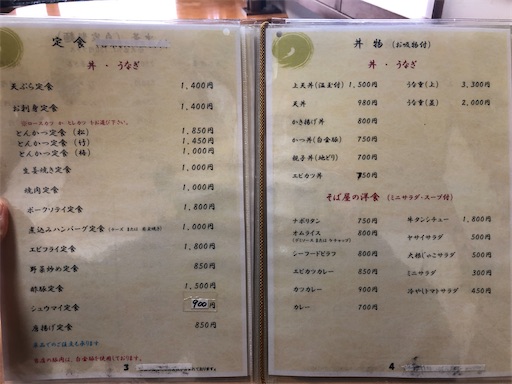 定食
丼・うなぎ
天ぷら定食 1,400円
お刺身定食 1,400円
とんかつ定食(松) 1,850円
とんかつ定食(竹) 1,450円
とんかつ定食(梅) 1,000円
生姜焼き定食 1,000円
焼肉定食 1,000円
ポークソテイ定食 1,800円
煮込みハンバーグ定食 1,000円
エビフライ定食 1,800円
野菜炒め定食 850円
酢豚定食 1,500円
シュウマイ定食 900円
唐揚げ定食 850円
単品でのご注文も承ります
当店の豚肉は、白金豚を使用しております。
3
丼物(お吸物付)
丼・うなぎ
上天丼(温玉付) 1,500円
天丼 980円
かき揚げ丼 800円
かつ丼(白金豚) 750円
親子丼(地どり) 700円
エビカツ丼 750円
うな重(上) 3,300円
うな重(並) 2,000円
そば屋の洋食(ミニサラダ・スープ付)
ナポリタン 750円
オムライス 800円
(デミソースまたはケチャップ)
シーフードピラフ 800円
エビカツカレー 850円
カツカレー 900円
カレー 700円
牛タンシチュー 1,800円
ヤサイサラダ 500円
大根じゃこサラダ 500円
ミニサラダ 300円
冷やしトマトサラダ 450円
4